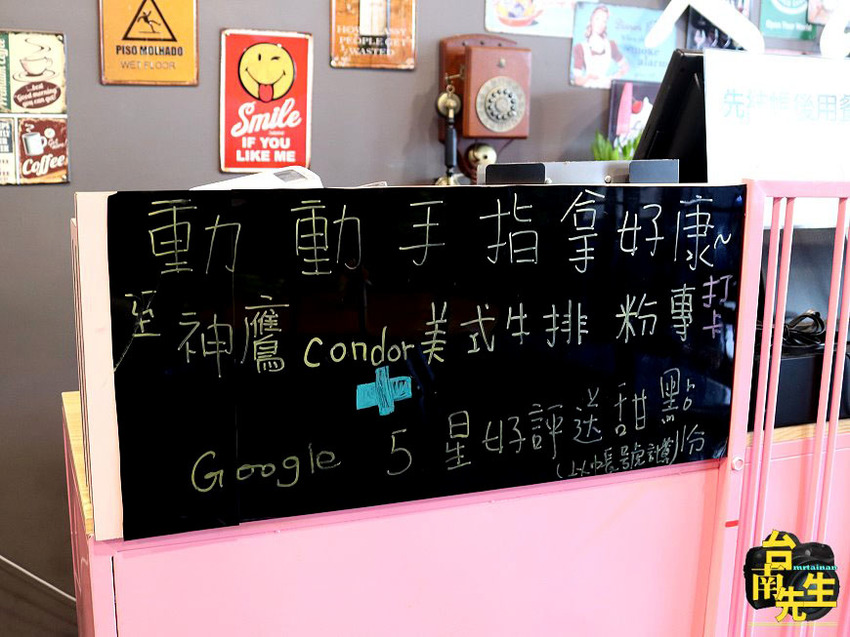 PISO MOLHADO
WET FLOOR
PEOPLE GET
WASTED
Smile
IF YOU
LIKE ME
Good morning
you can get!
Coffee
動動手指拿好康~
至神鷹condor美式牛排粉專打卡
+
Google 5星好評送甜點
份
台南先生
mrtainan